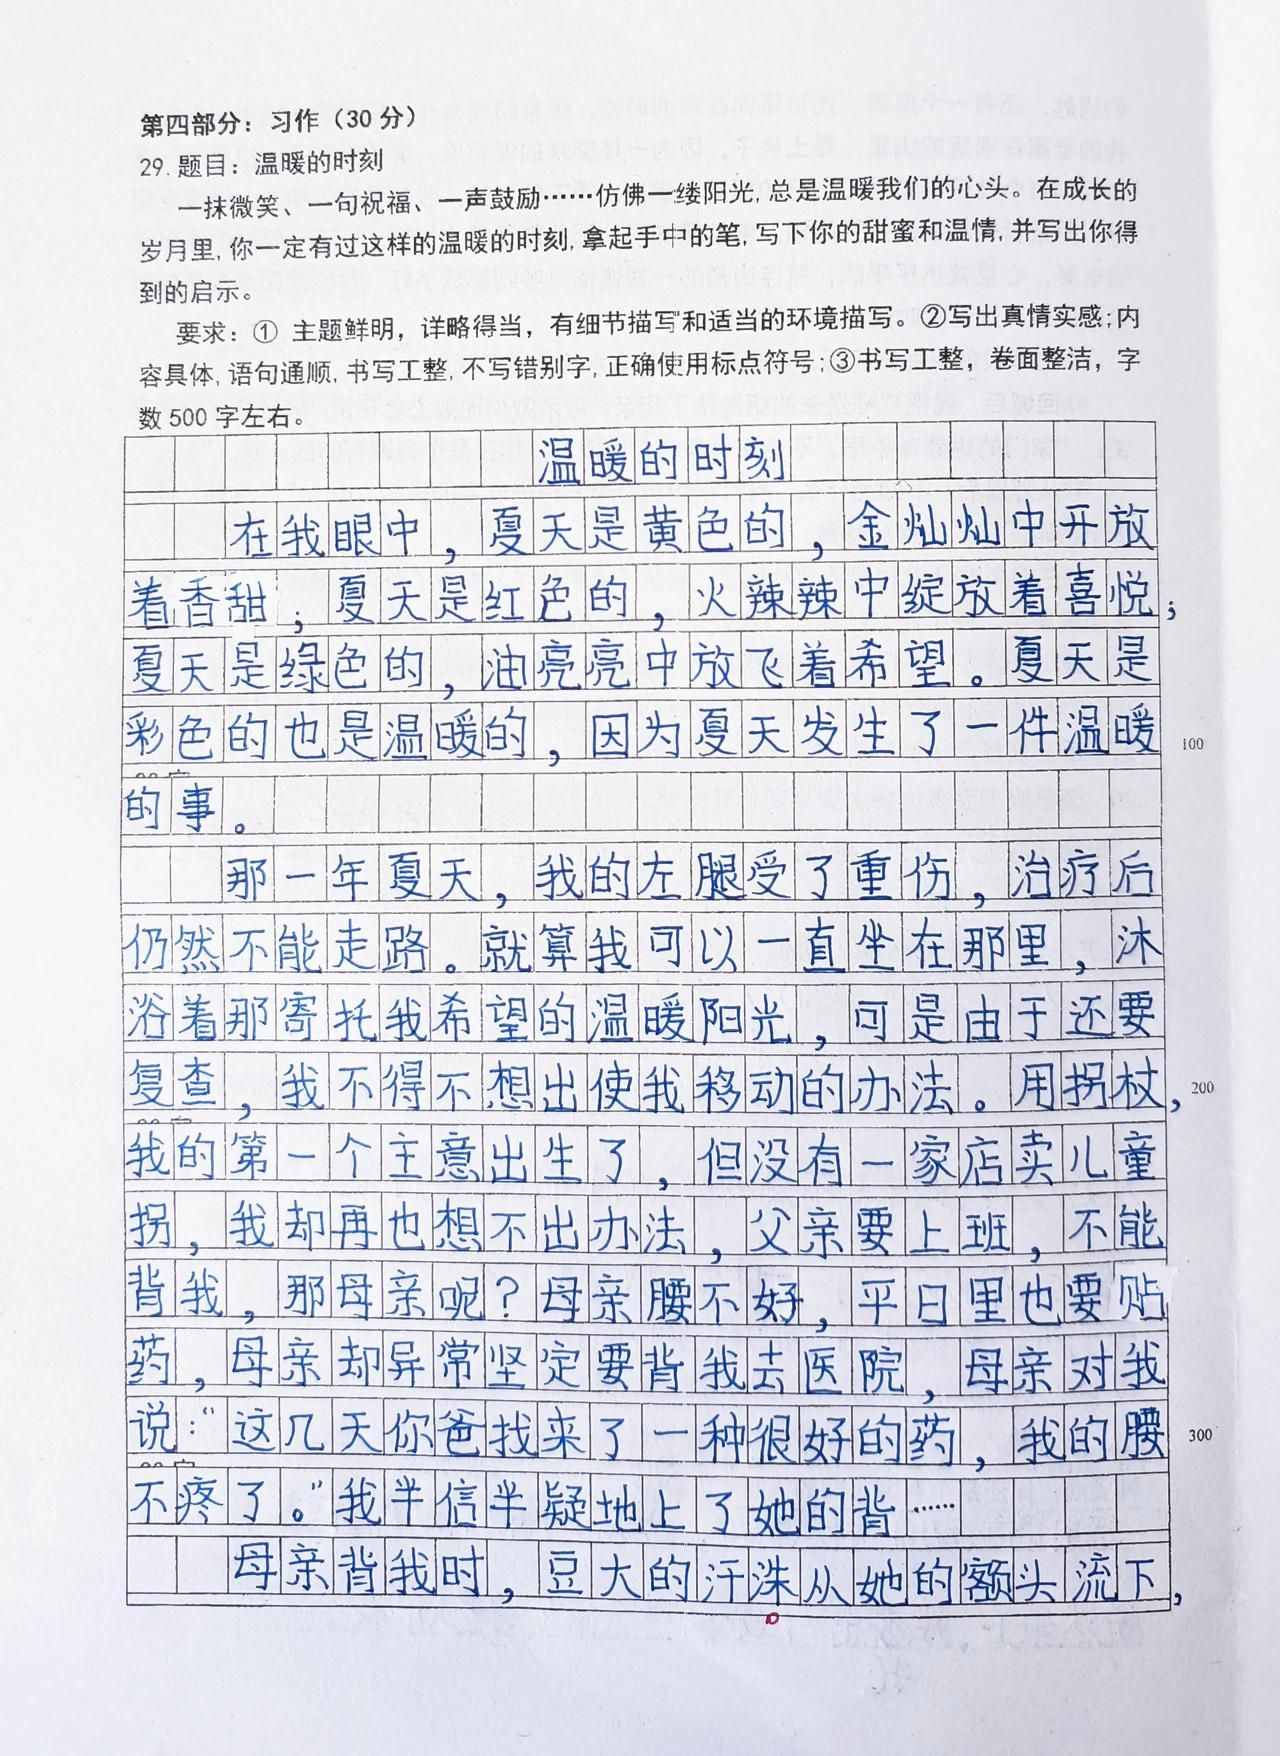 第四部分：习作（30分）
29.题目：温暖的时刻
一抹微笑、一句祝福、一声鼓励……仿佛一缕阳光,总是温暖我们的心头。在成长的
岁月里,你一定有过这样的温暖的时刻,拿起手中的笔,写下你的甜蜜和温情,并写出你得
到的启示。
要求：① 主题鲜明，详略得当，有细节描写和适当的环境描写。②写出真情实感;内
容具体,语句通顺,书写工整,不写错别字,正确使用标点符号;③书写工整，卷面整洁，字
数500字左右。
温暖的时刻
在我眼中，夏天是黄色的，金灿灿中开放
着香甜；夏天是红色的，火辣辣中绽放着喜悦；
夏天是绿色的，油亮亮中放飞着希望。夏天是
彩色的也是温暖的，因为夏天发生了一件温暖 100
的事。
那一年夏天，我的左腿受了重伤，治疗后
仍然不能走路。就算我可以一直坐在那里，沐
浴着那寄托我希望的温暖阳光，可是由于还要
复查，我不得不想出使我移动的办法。用拐杖， 200
我的第一个主意出生了，但没有一家店卖儿童
拐，我却再也想不出办法，父亲要上班，不能
背我，那母亲呢？母亲腰不好，平日里也要贴
药，母亲却异常坚定要背我去医院，母亲对我
说：“这几天你爸找来了一种很好的药，我的腰 300
不疼了。”我半信半疑地上了她的背……
母亲背我时，豆大的汗洙从她的额头流下，